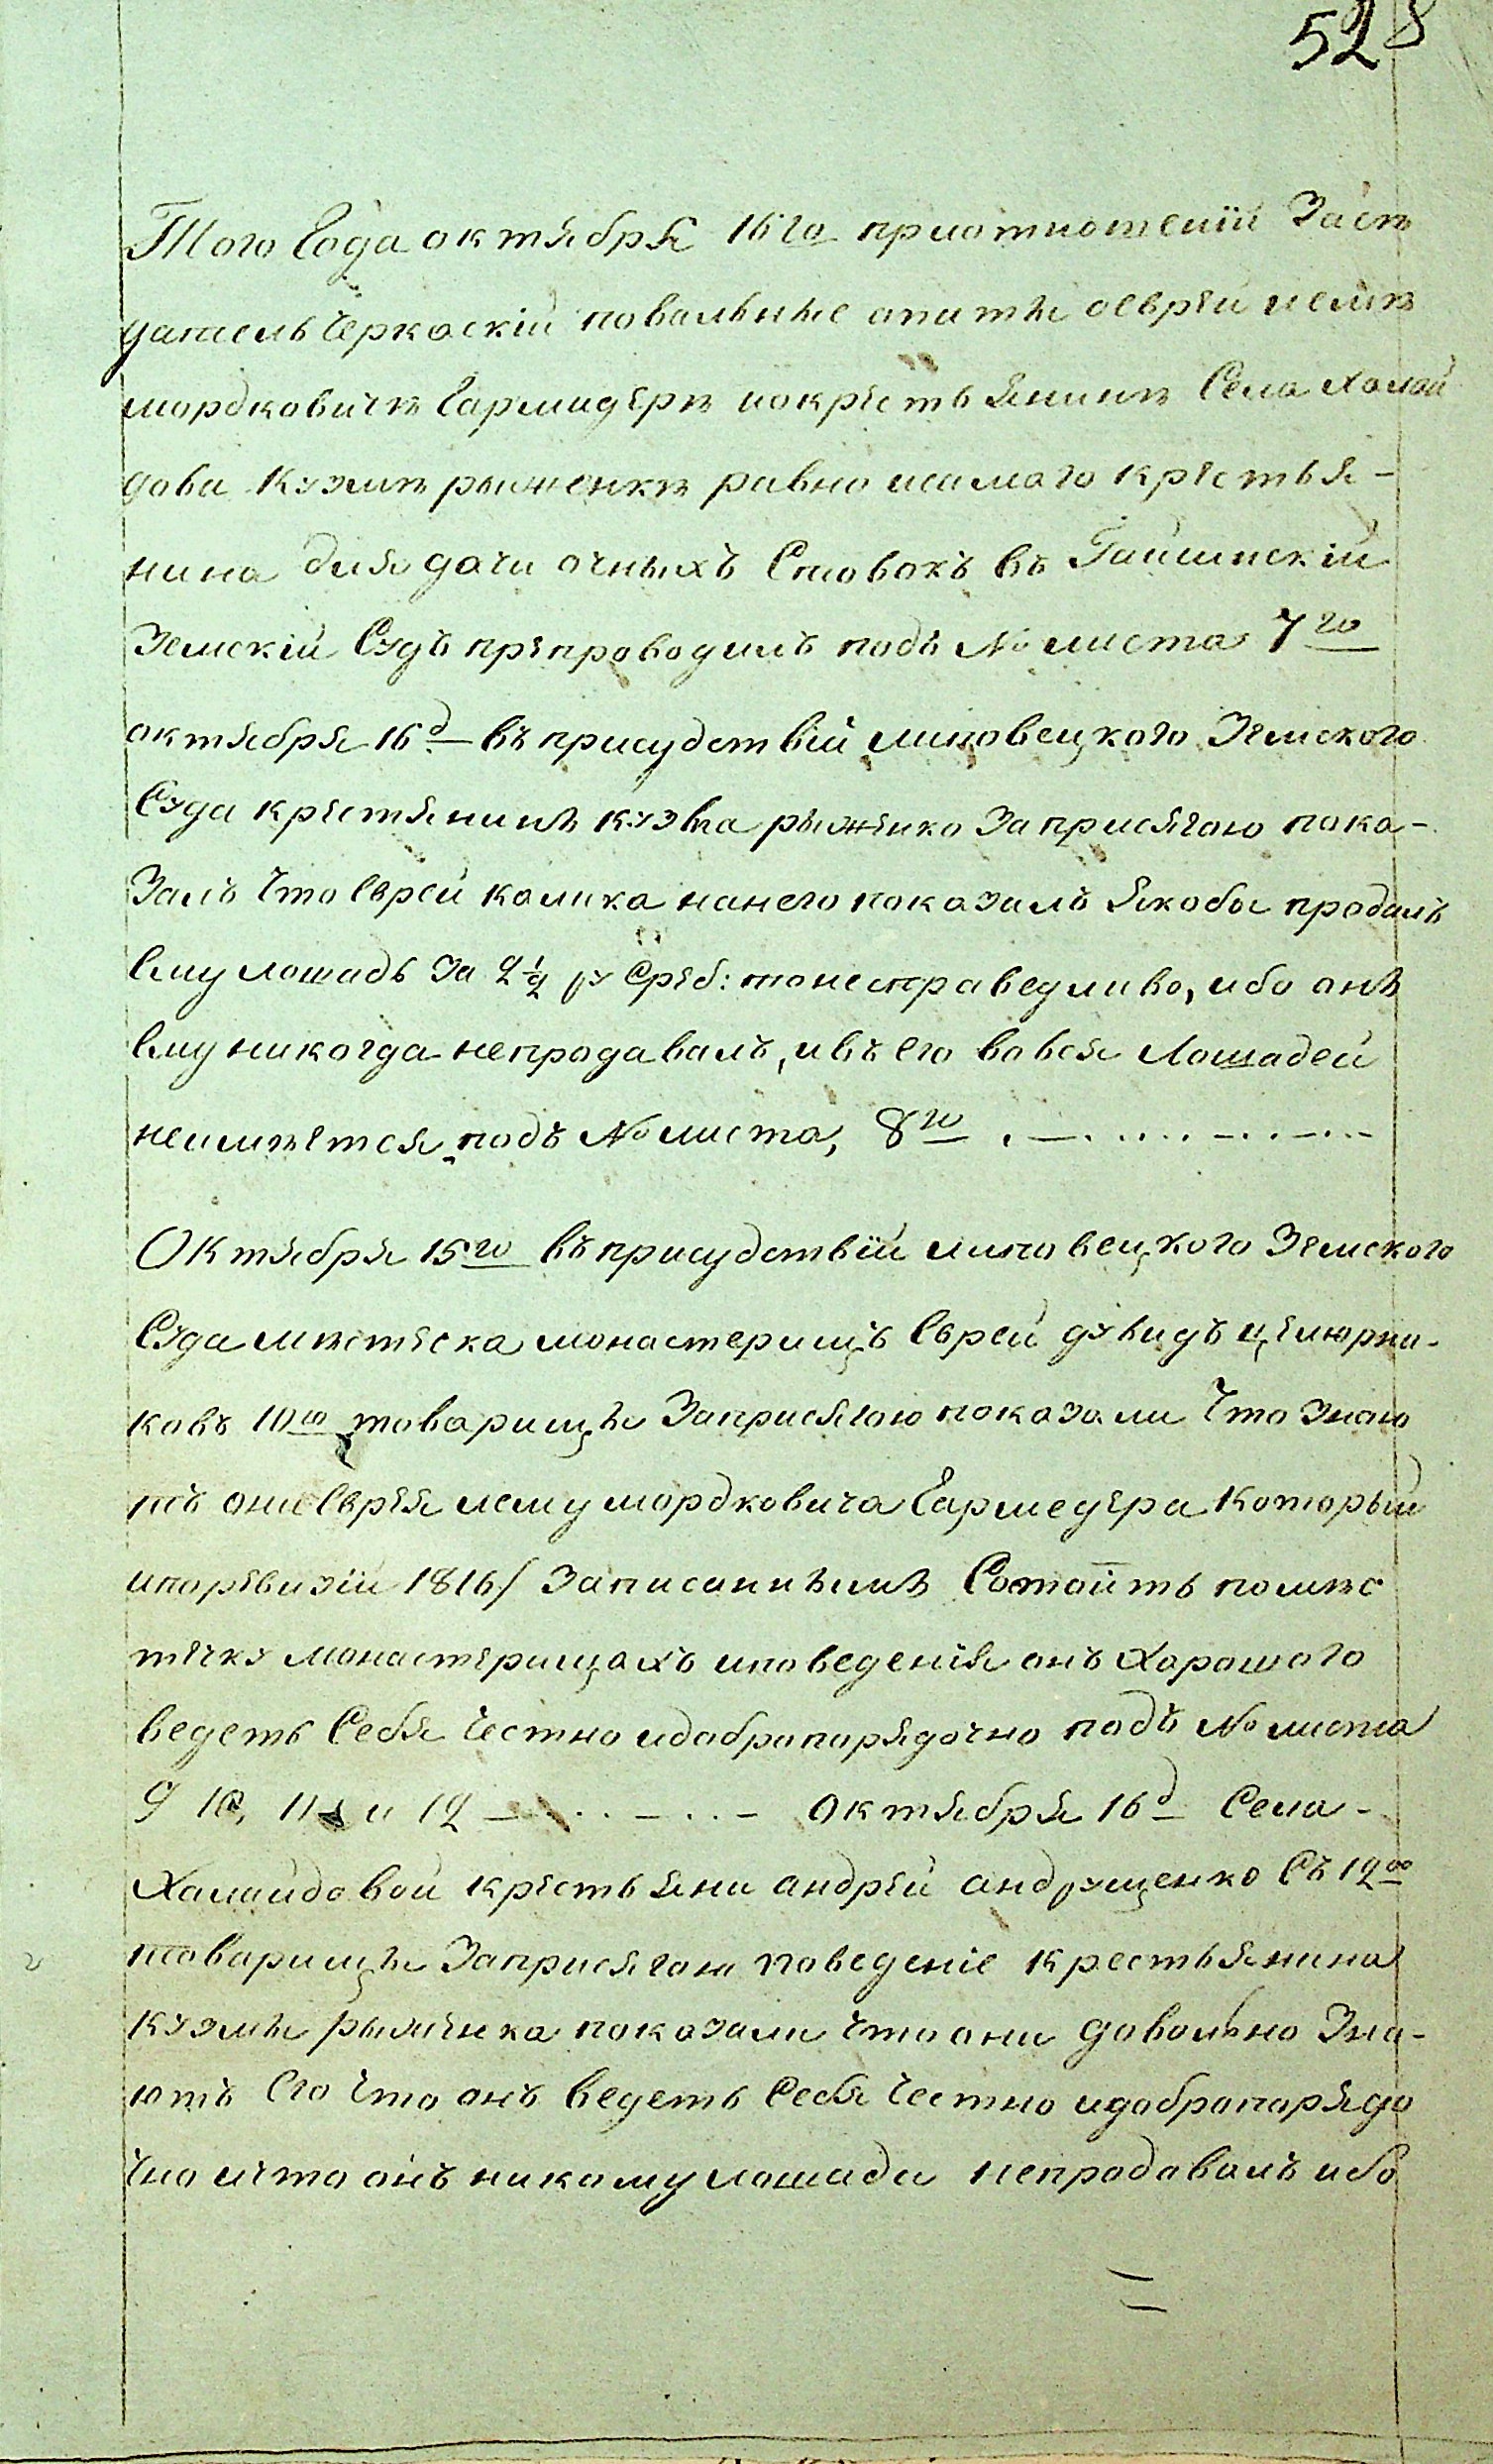 528
Того Года октября 16го приотношеніи Засѣ
датель Черкаскій повальные опыты оеврѣи лемѣ
мордковичѣ Гармидерѣ иокрестьянинѣ Села Халаи
дова кузмѣ рыженкѣ равно исамого крестья-
нина для дачи очныхъ Ставокъ въ Гайсинскій
Земскій Судъ препроводилъ подъ № листа 7го
октября 16д въприсудствіи липовецкого Земского
Суда крестянинъ кузма рыженко Заприсягою пока-
Залъ Что Еврей калика нанего показалъ Якобы продалъ
Ему лошадь За 2½ ру Среб: тонесправедливо, ибо онъ
Ему никогда непродавалъ, ивъ его вовся Лошадей
неимѣется подъ № листа, 8го
Октября 15го въприсудствіи липовецкого Земского
Суда мѣстеска монастерищъ Еврей дувидъ цемюрни-
ковъ 10ю товарищы Заприсягою показали Что знаю
тъ они Еврея лему мордковича Гармедера Который
ипоревизіи 1816/ Записаннымъ Состоитъ помѣс
течку монастерищахъ иповеденія онъ Хорошого
ведетъ Себя Честно идобропорядочно подъ № листа
9 10, 11 и 12 Октября 16д Села-
Халаидовой крестьяни андрей андрущенко Съ 12ю
товарищы Заприсягою поведеніе крестьянина
кузмы рыженка показали что они довольно Зна-
ютъ Его Что онъ ведетъ Себя Честно идобропорядо
Чно ичто онъ никому лошади непродавалъ ибо